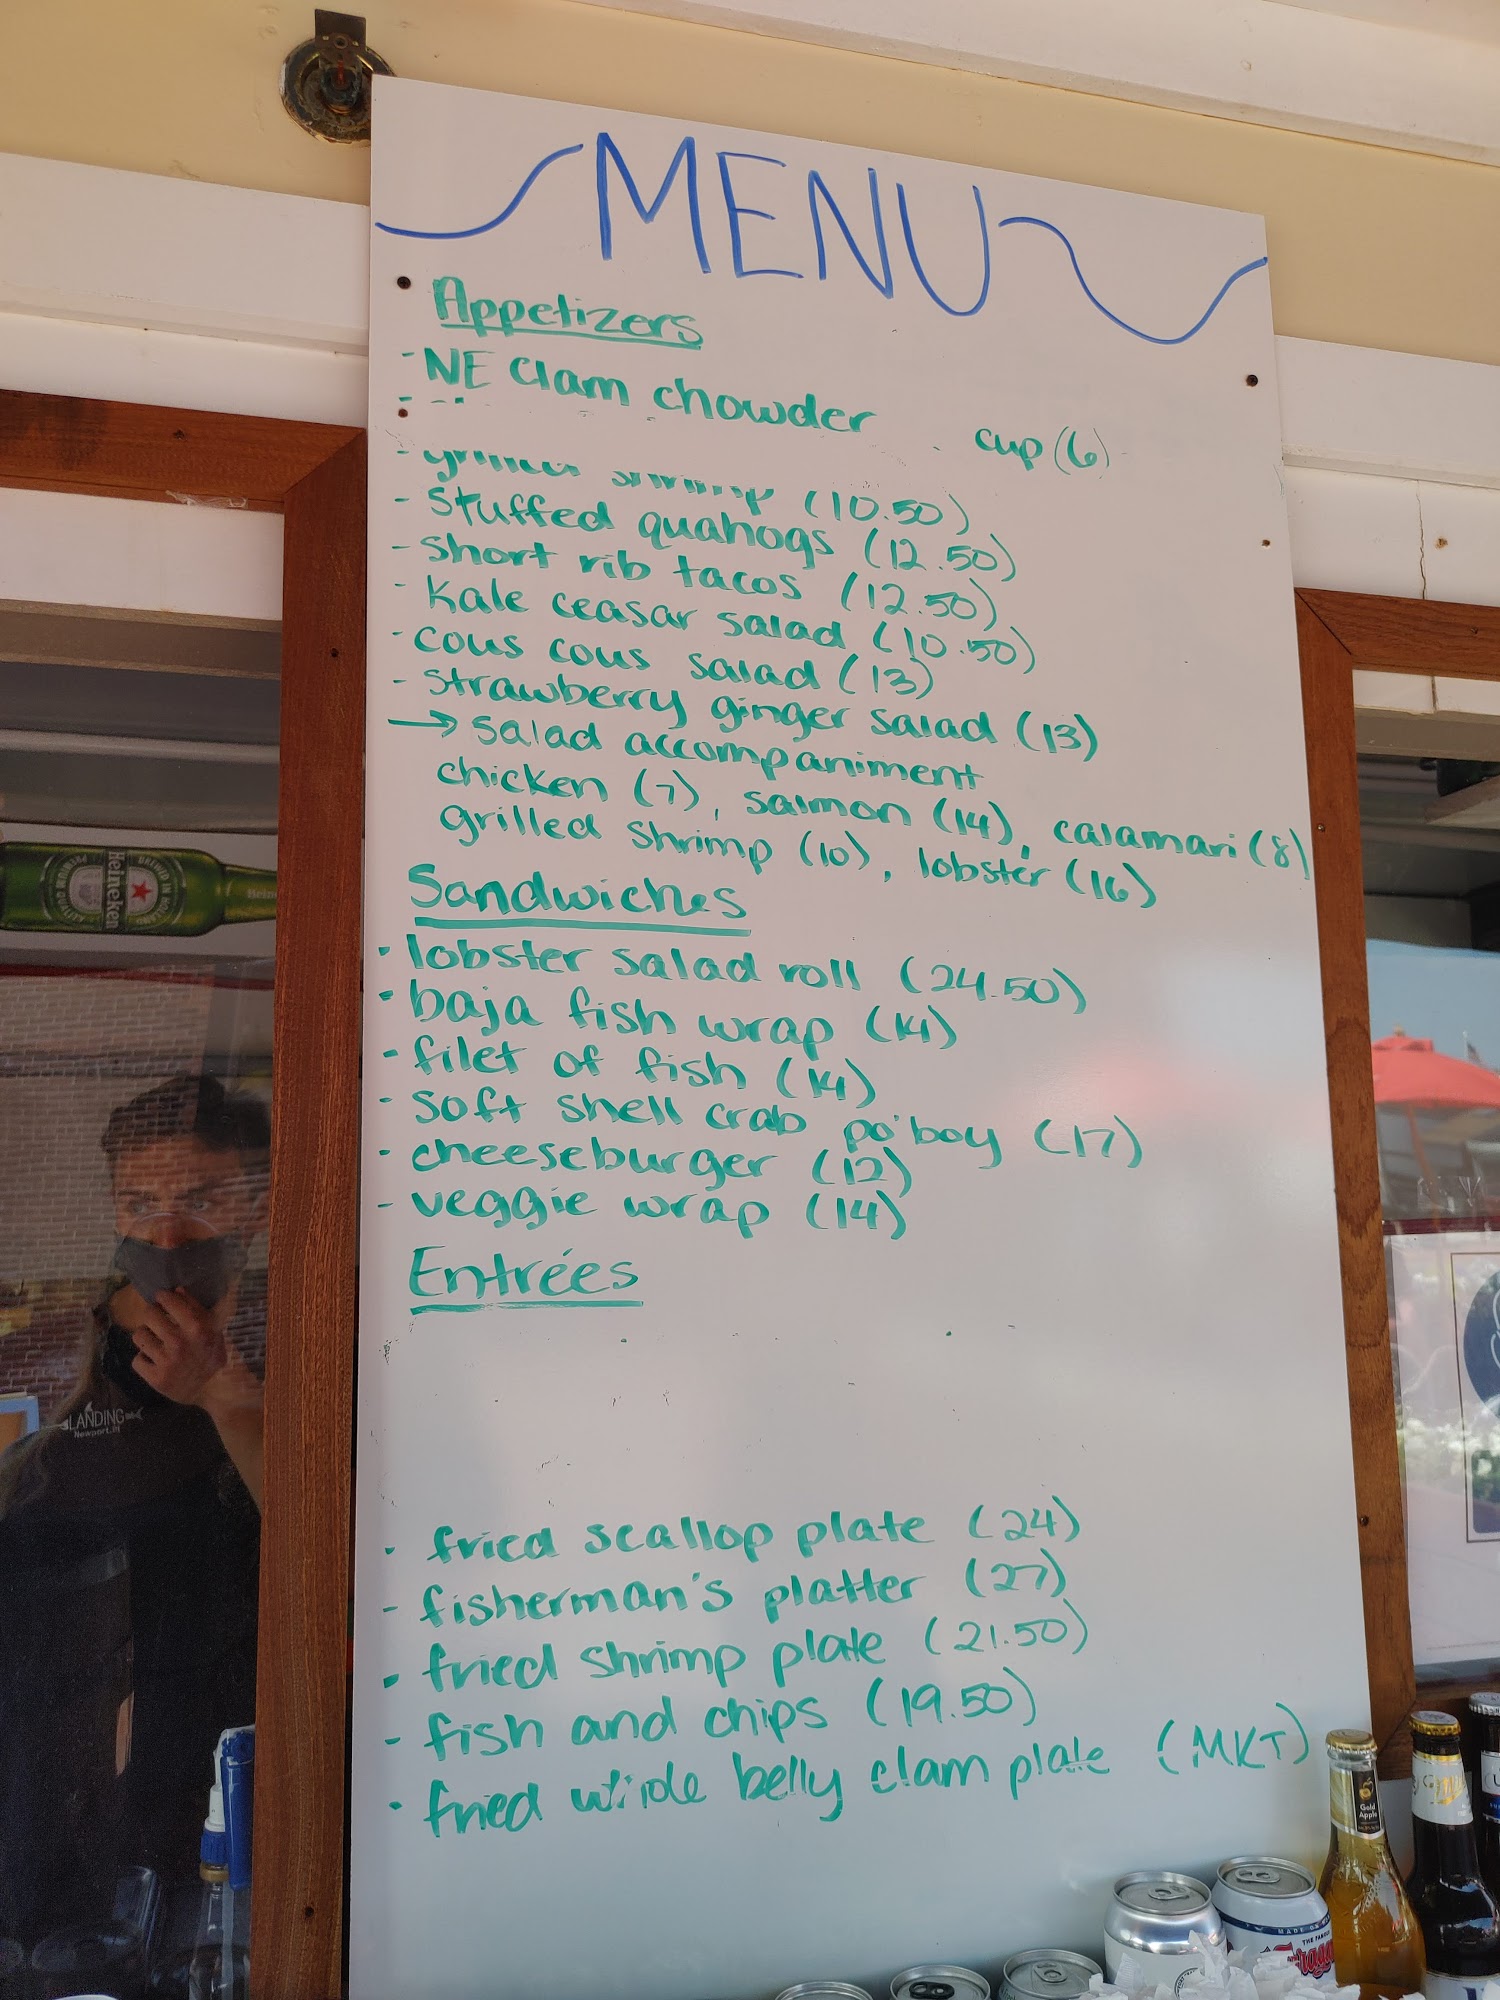 MENU
Appetizers
- NE Clam chowder cup (6)
- shrimp (10.50)
- stuffed quahogs (12.50)
- short rib tacos (12.50)
- Kale ceasar salad (10.50)
- cous cous salad (13)
- strawberry ginger salad (13)
→ salad accompaniment
chicken (7), salmon (14), calamari (8)
grilled shrimp (10), lobster (16)
Sandwiches
- lobster salad roll (24.50)
- baja fish wrap (14)
- filet of fish (14)
- soft shell crab po'boy (17)
- cheeseburger (12)
- veggie wrap (14)
Entrées
- fried scallop plate (24)
- fisherman's platter (27)
- fried shrimp plate (21.50)
- fish and chips (19.50)
- fried whole belly clam plate (MKT)
Heineken
LANDING
Newport, RI
Gold
Apple